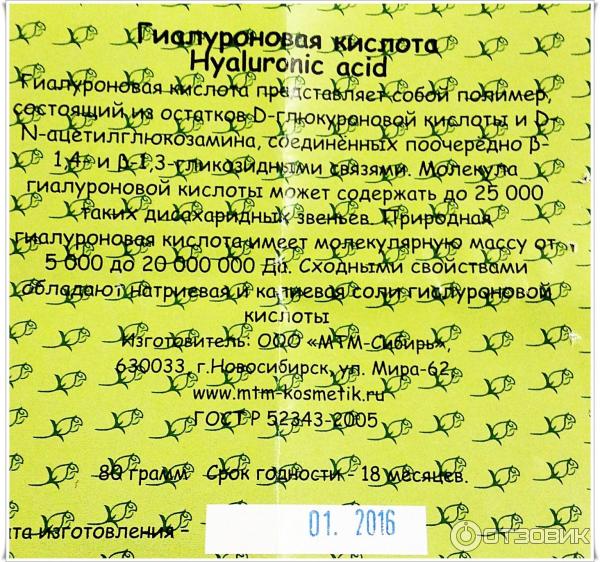 Гиалуроновая кислота
Hyaluronic acid
Гиалуроновая кислота представляет собой полимер,
состоящий из остатков D-глюкуроновой кислоты и D-
N-ацетилглюкозамина, соединённых поочередно β-
1,4- и β-1,3-гликозидными связями. Молекула
гиалуроновой кислоты может содержать до 25 000
таких дисахаридных звеньев. Природная
гиалуроновая кислота имеет молекулярную массу от
5 000 до 20 000 000 Да. Сходными свойствами
обладают натриевая и калиевая соли гиалуроновой
кислоты
Изготовитель: ООО «МТМ-Сибирь»,
630033, г.Новосибирск, ул. Мира-62,
www.mtm-kosmetik.ru
ГОСТ Р 52343-2005
80 грамм Срок годности - 18 месяцев.
та изготовления - 01. 2016
ОТЗОВИК